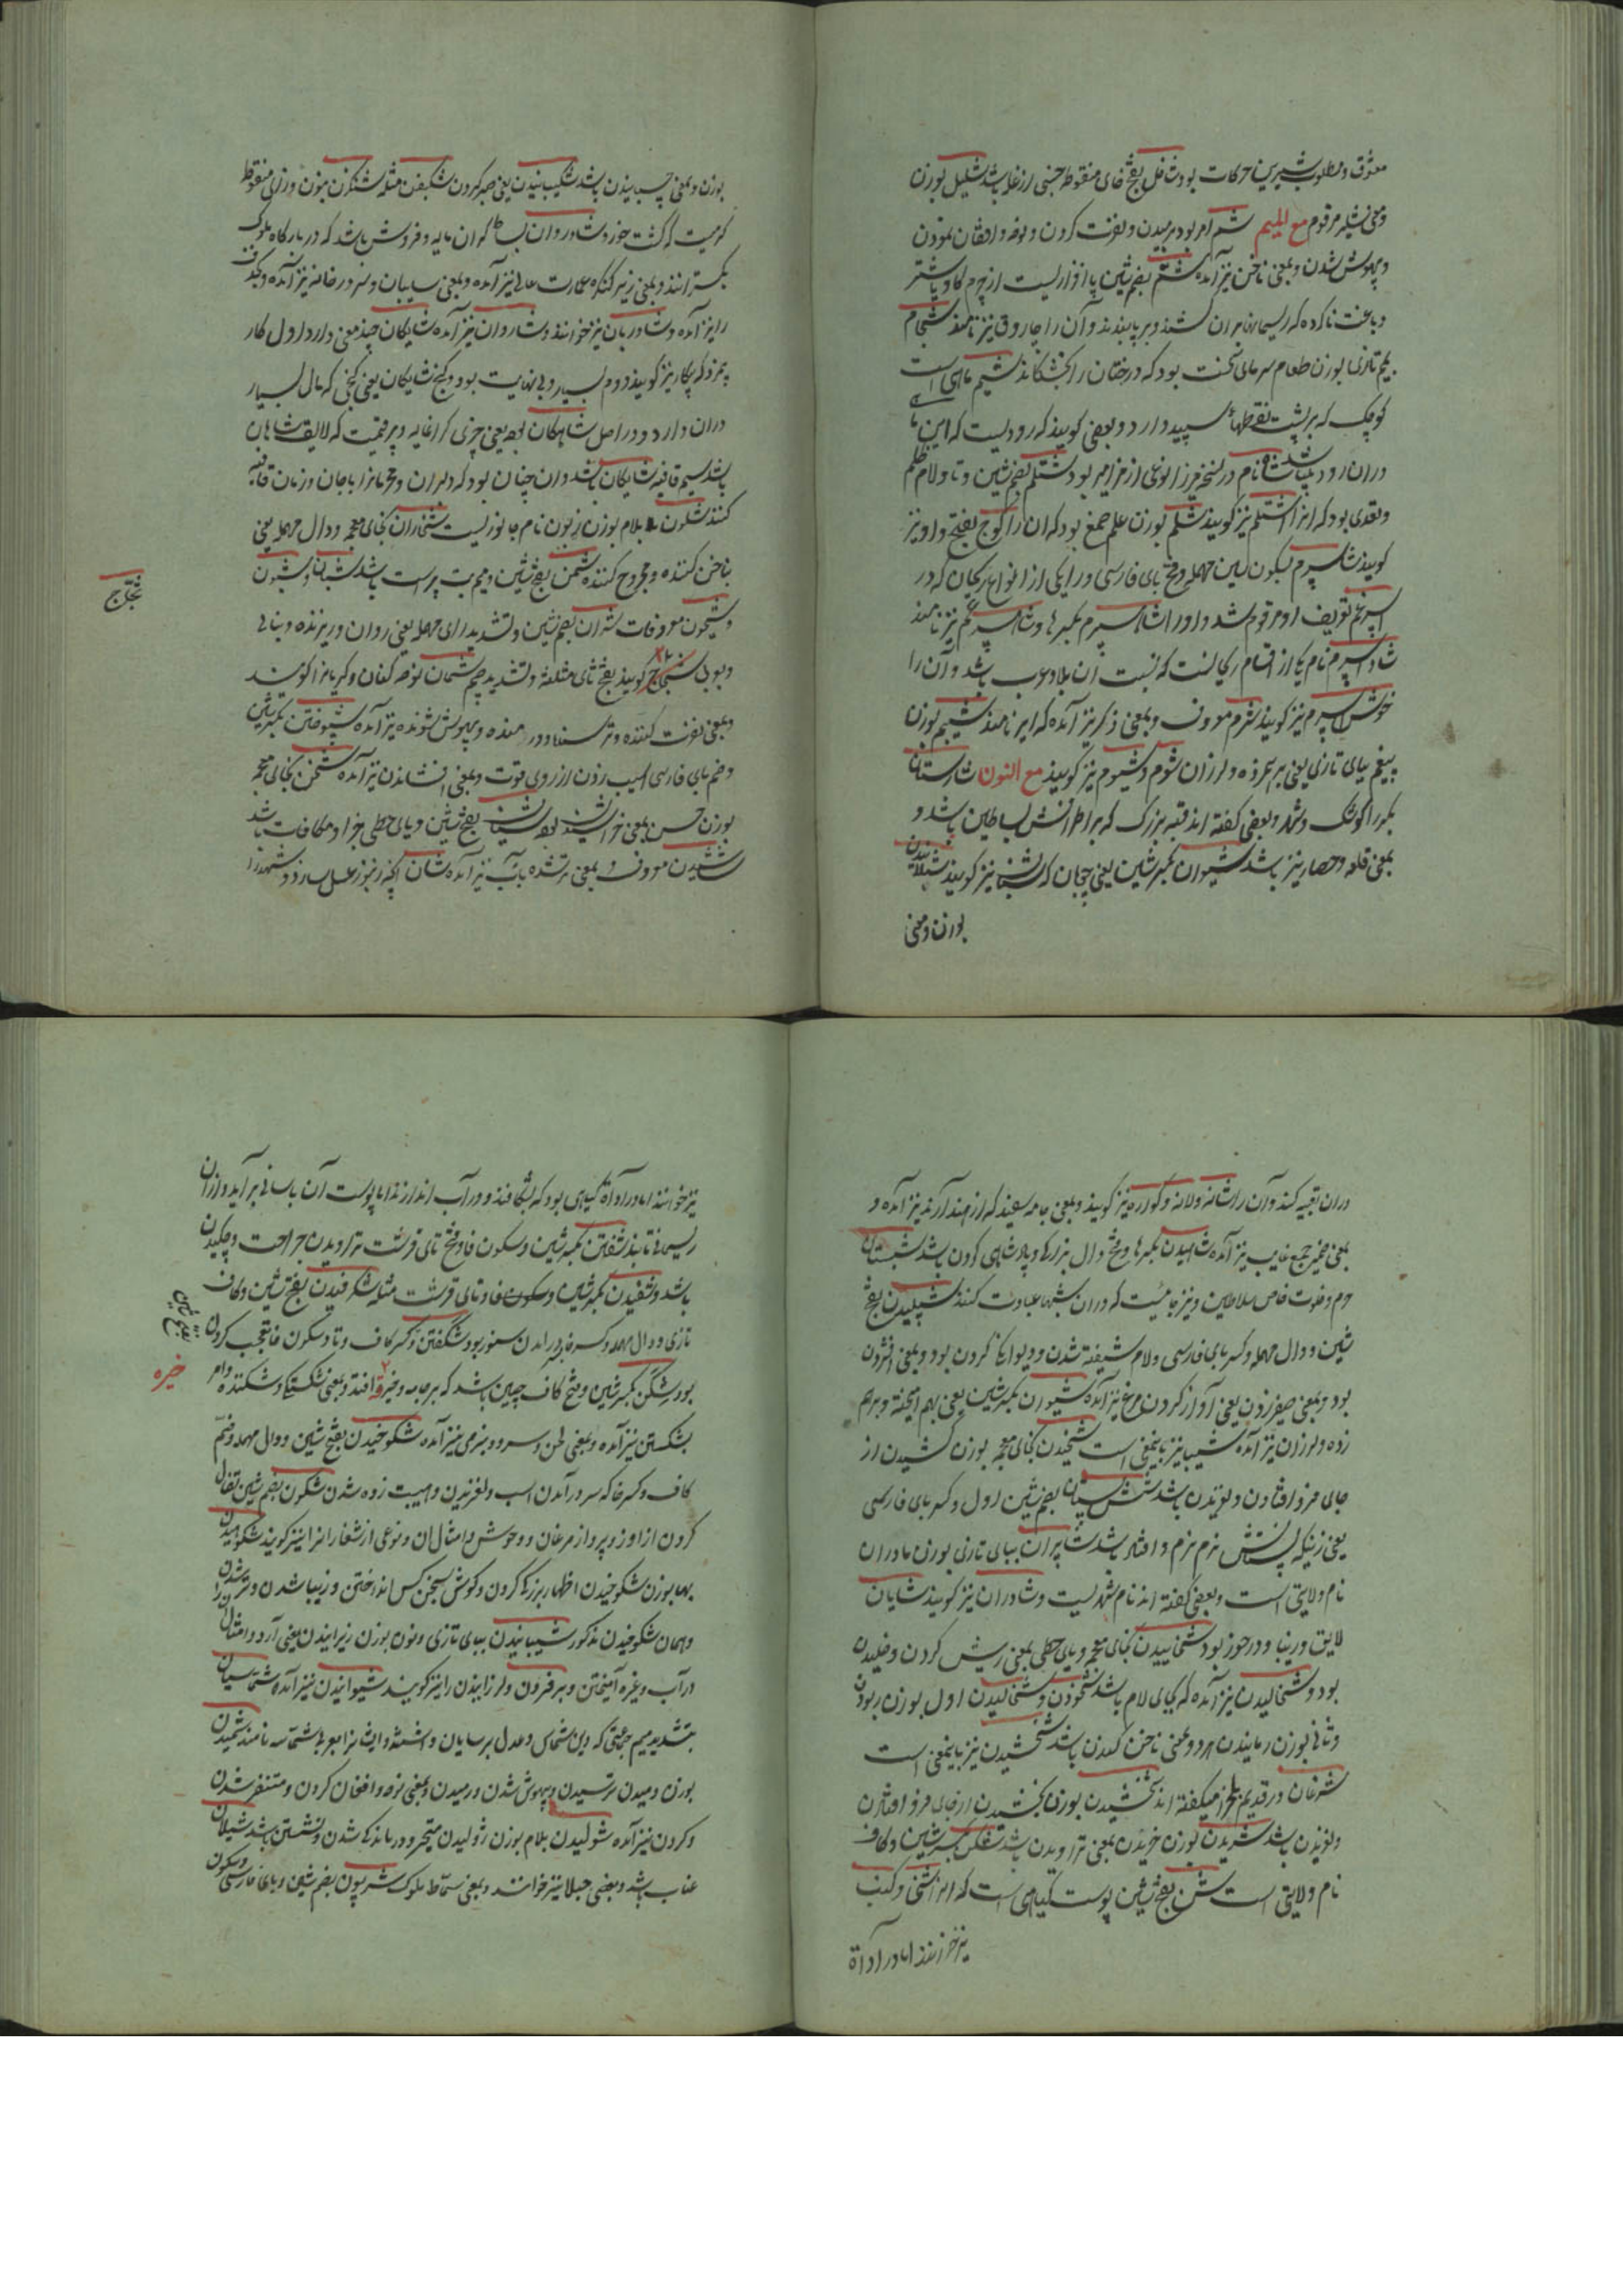 معشوق و مطلوب شیرین حرکات بود شافل بفتح فای منقوطه جنسی از غله باشد شلیل بوزن
و معنی شلیر مرقوم مع المیم شم امر بود برمیدن و نفرت کردن و نوحه و افغان نمودن
و بیهوش شدن و بمعنی ناخن نیز آمده شم بضم شین پا افزاریست از چرم گاو یا شتر
دباغت ناکرده که ریسمان بران کشند و بر پا بندند و آن را چاروق نیز نامند شجام
بجیم تازی بوزن طعام سرمای سخت بود که درختان را بخشکاند شیم ماهی است
کوچک که بر پشت نقطهاء سپید دارد و بعضی گویند که رودیست که این ماهی
دران رود باشد شانام در نسخه میرزا نوعی از مزامیر بود شتلم بضم شین و تا و لام ظلم
و تعدی بود که انرا اشتلم نیز گویند شلم بوزن علم صمغ بود که ان را کوج بفتح واو نیز
گویند شاسپرم بسکون سین مهمله و فتح بای فارسی و را یکی از انواع ریحان که در
اسپرغم تعریف او مرقوم شد و او را شاه اسپرم بکسر ها و شاه اسپرغم نیز نامند
شاداسپرم نام یکی از اقسام ریحانست که نسبت ان بلاد عرب باشد و آن را
خوش اسپرم نیز گویند شرم معروف و بمعنی ذکر نیز آمده که ایر نامند شیبم بوزن
پیغم ببای تازی یعنی بر هم زده و لرزان شوم و شیوم نیز گویند مع النون شارستان
بکسر را کوشک و شهر و بعضی گفته اند قبه بزرگ که بر اطرافش بساطین باشد و
بمعنی قلعه و حصار نیز باشد شیوان بکسر شین یعنی پیچان که نیز گویند شیلانیدن
بوزن و معنی
بوزن و بمعنی چسبیدن باشد شکیبیدن یعنی صبر کردن شکیفتن مثله شنگرن بنون و زای منقوط
کرمیست که کشت خورد شادروان بساط گران مایه و فروش باشد که در بارگاه ملوک
بگسترانند و بمعنی زیر کنگره عمارت عالی نیز آمده و بمعنی سایبان و سر در خانه نیز آمده و بحذف
را نیز آمده و شادربان نیز خوانند و شاروان نیز آمده شایگان چند معنی دارد اول کار
بیمزد که بیگار نیز گویند دوم بسیار و بی نهایت بود و گنج شایگان یعنی گنجی که مال بسیار
دران دارد و در اصل شاهگان بوده یعنی چیزی گرانمایه و پر قیمت که لایق شاهان
باشد سیم قافیه شایگان باشد و ان چنان بود که دلبران و محرمانرا با جان و زمان قافیه
کنند شلون بلام بوزن زبون نام جانوریست شخاران بخای معجمه و دال مهمله یعنی
بناخن کننده و مجروح کننده شمن بفتح شین و میم بت پرست باشد شبان و شیون
و شیخون معروفات شران بضم شین و تشدید رای مهمله یعنی روان و ریزنده و بتازی
و بعربی ثجاج گویند بفتح ثای مثلثه و تشدید جیم شمان نوحه کنان و گریانرا گویند
ثجاج
و بمعنی نفرت کننده و ترسنده و درمنده و بیهوش شونده نیز آمده شپوختن بکسر شین
و ضم بای فارسی اسیب زدن از روی قوت و بمعنی افشاندن نیز آمده شخن بخای معجمه
بوزن چمن بمعنی خراشیدن بود شیان بفتح شین و یای حطی جزا و مکافات باشد
شاشیدن معروف و بمعنی تر شده باب نیز آمده شان آنچه زنبور عسل سازد و شهد را
دران تعبیه کند و آن را شانه و لانه و گواره نیز گویند و بمعنی جامه سفید که از هند آرند نیز آمده و
بمعنی ضمیر جمع غایب نیز آمده شاهیدن بکسر ها و فتح دال بزرگی و پادشاهی کردن باشد شبستان
حرم و خلوت خاص سلاطین و نیز جائیست که دران شبها عبادت کنند شپلیدن بفتح
شین و دال مهمله و کسر بای فارسی و لام شیفته شدن و دیوانگی کردن بود و بمعنی افشردن
بود و بمعنی صفیر زدن یعنی آواز کردن مرغ نیز آمده شیوان بکسر شین یعنی بهم آمیخته و برهم
زده و لرزان نیز آمده شیبا نیز باینمعنی است شخیدن بخای معجمه بوزن کشیدن از
جای فرو افتادن و لغزیدن باشد شش پستان بضم شین اول و کسر بای فارسی
یعنی زنیکه پستانش نرم نرم و افتاده باشد شابران ببای تازی بوزن مادران
نام ولایتی است و بعضی گفته اند نام شهریست و شاوران نیز گویند شایان
لایق و زیبا و در خور بود شخاییدن بخای معجمه و یای حطی بمعنی ریش کردن و خلیدن
بود و شخالیدن نیز آمده که بجای لام باشد شخودن و شخانیدن اول بوزن ربودن
و ثانی بوزن رمانیدن هر دو بمعنی ناخن کندن باشد شخشیدن نیز باینمعنی است
شرغان در قدیم بلخ را میگفته اند شخشیدن بوزن بخشیدن از جای فرو افتادن
و لغزیدن باشد شریدن بوزن خریدن بمعنی تراویدن باشد شکن بکسر شین و کاف
نام ولایتی است شن بفتح شین پوست گیاهی است که انرا شنی و کنب
نیز خوانند اما در اداة
نیز خوانند اما در اداة گیاهی بود که بشکافند و در آب اندازند تا پوست آن باسانی بر آید و ازان
ریسمانها تابند شفتن بکسر شین و سکون فا و فتح تای قرشت تراویدن جراحت و چکیدن
باشد و شفیدن بکسر شین و سکون فا و تای قرشت مثله شکرفیدن بفتح شین و کاف
تازی و دال مهمله و کسر فا بسر در امدن ستور بود شگفتن بکسر کاف و تا و سکون فا تعجب کردن
بود شکن بکسر شین و فتح کاف چین باشد که بر جامه و خیره افتد و بمعنی شکستگی و شکننده و امر
خیره
بشکستن نیز آمده و بمعنی لحن و سرود و نرمی نیز آمده شکوخیدن بفتح شین و دال مهمله و ضم
کاف و کسر خا که سر در آمدن اسب و لغزیدن و هیبت زده شدن شکون بضم شین تفال
کردن از اواز و پرواز مرغان و وحوش و امثال ان و نوعی از شغار را نیز گویند شکوهیدن
بها بوزن شکوخیدن اظهار بزرگی کردن و گوش بسخن کس انداختن و زیبا شدن و ترسیدن
و همان شکوخیدن مذکور شیبانیدن ببای تازی و نون بوزن زیرانیدن یعنی آرد و امثال انرا
در آب و غیره آمیختن و بر هم زدن و لرزانیدن را نیز گویند شیوانیدن نیز آمده شماسیان
بتشدید میم جماعتی که دین شماس و عدل برسایان و اشیشه و ایشانرا بعربی شماسه نامند شمیدن
بوزن دمیدن ترسیدن و بیهوش شدن و رمیدن و بمعنی نوحه و افغان کردن و متنفر شدن
و کردن نیز آمده شولیدن بلام بوزن ژولیدن متحیر و درمانده شدن و نشستن باشد شیلان
عناب باشد و بعضی جیلان نیز خوانند و بمعنی سماط ملوک شریون بضم شین و یای فارسی و سکون